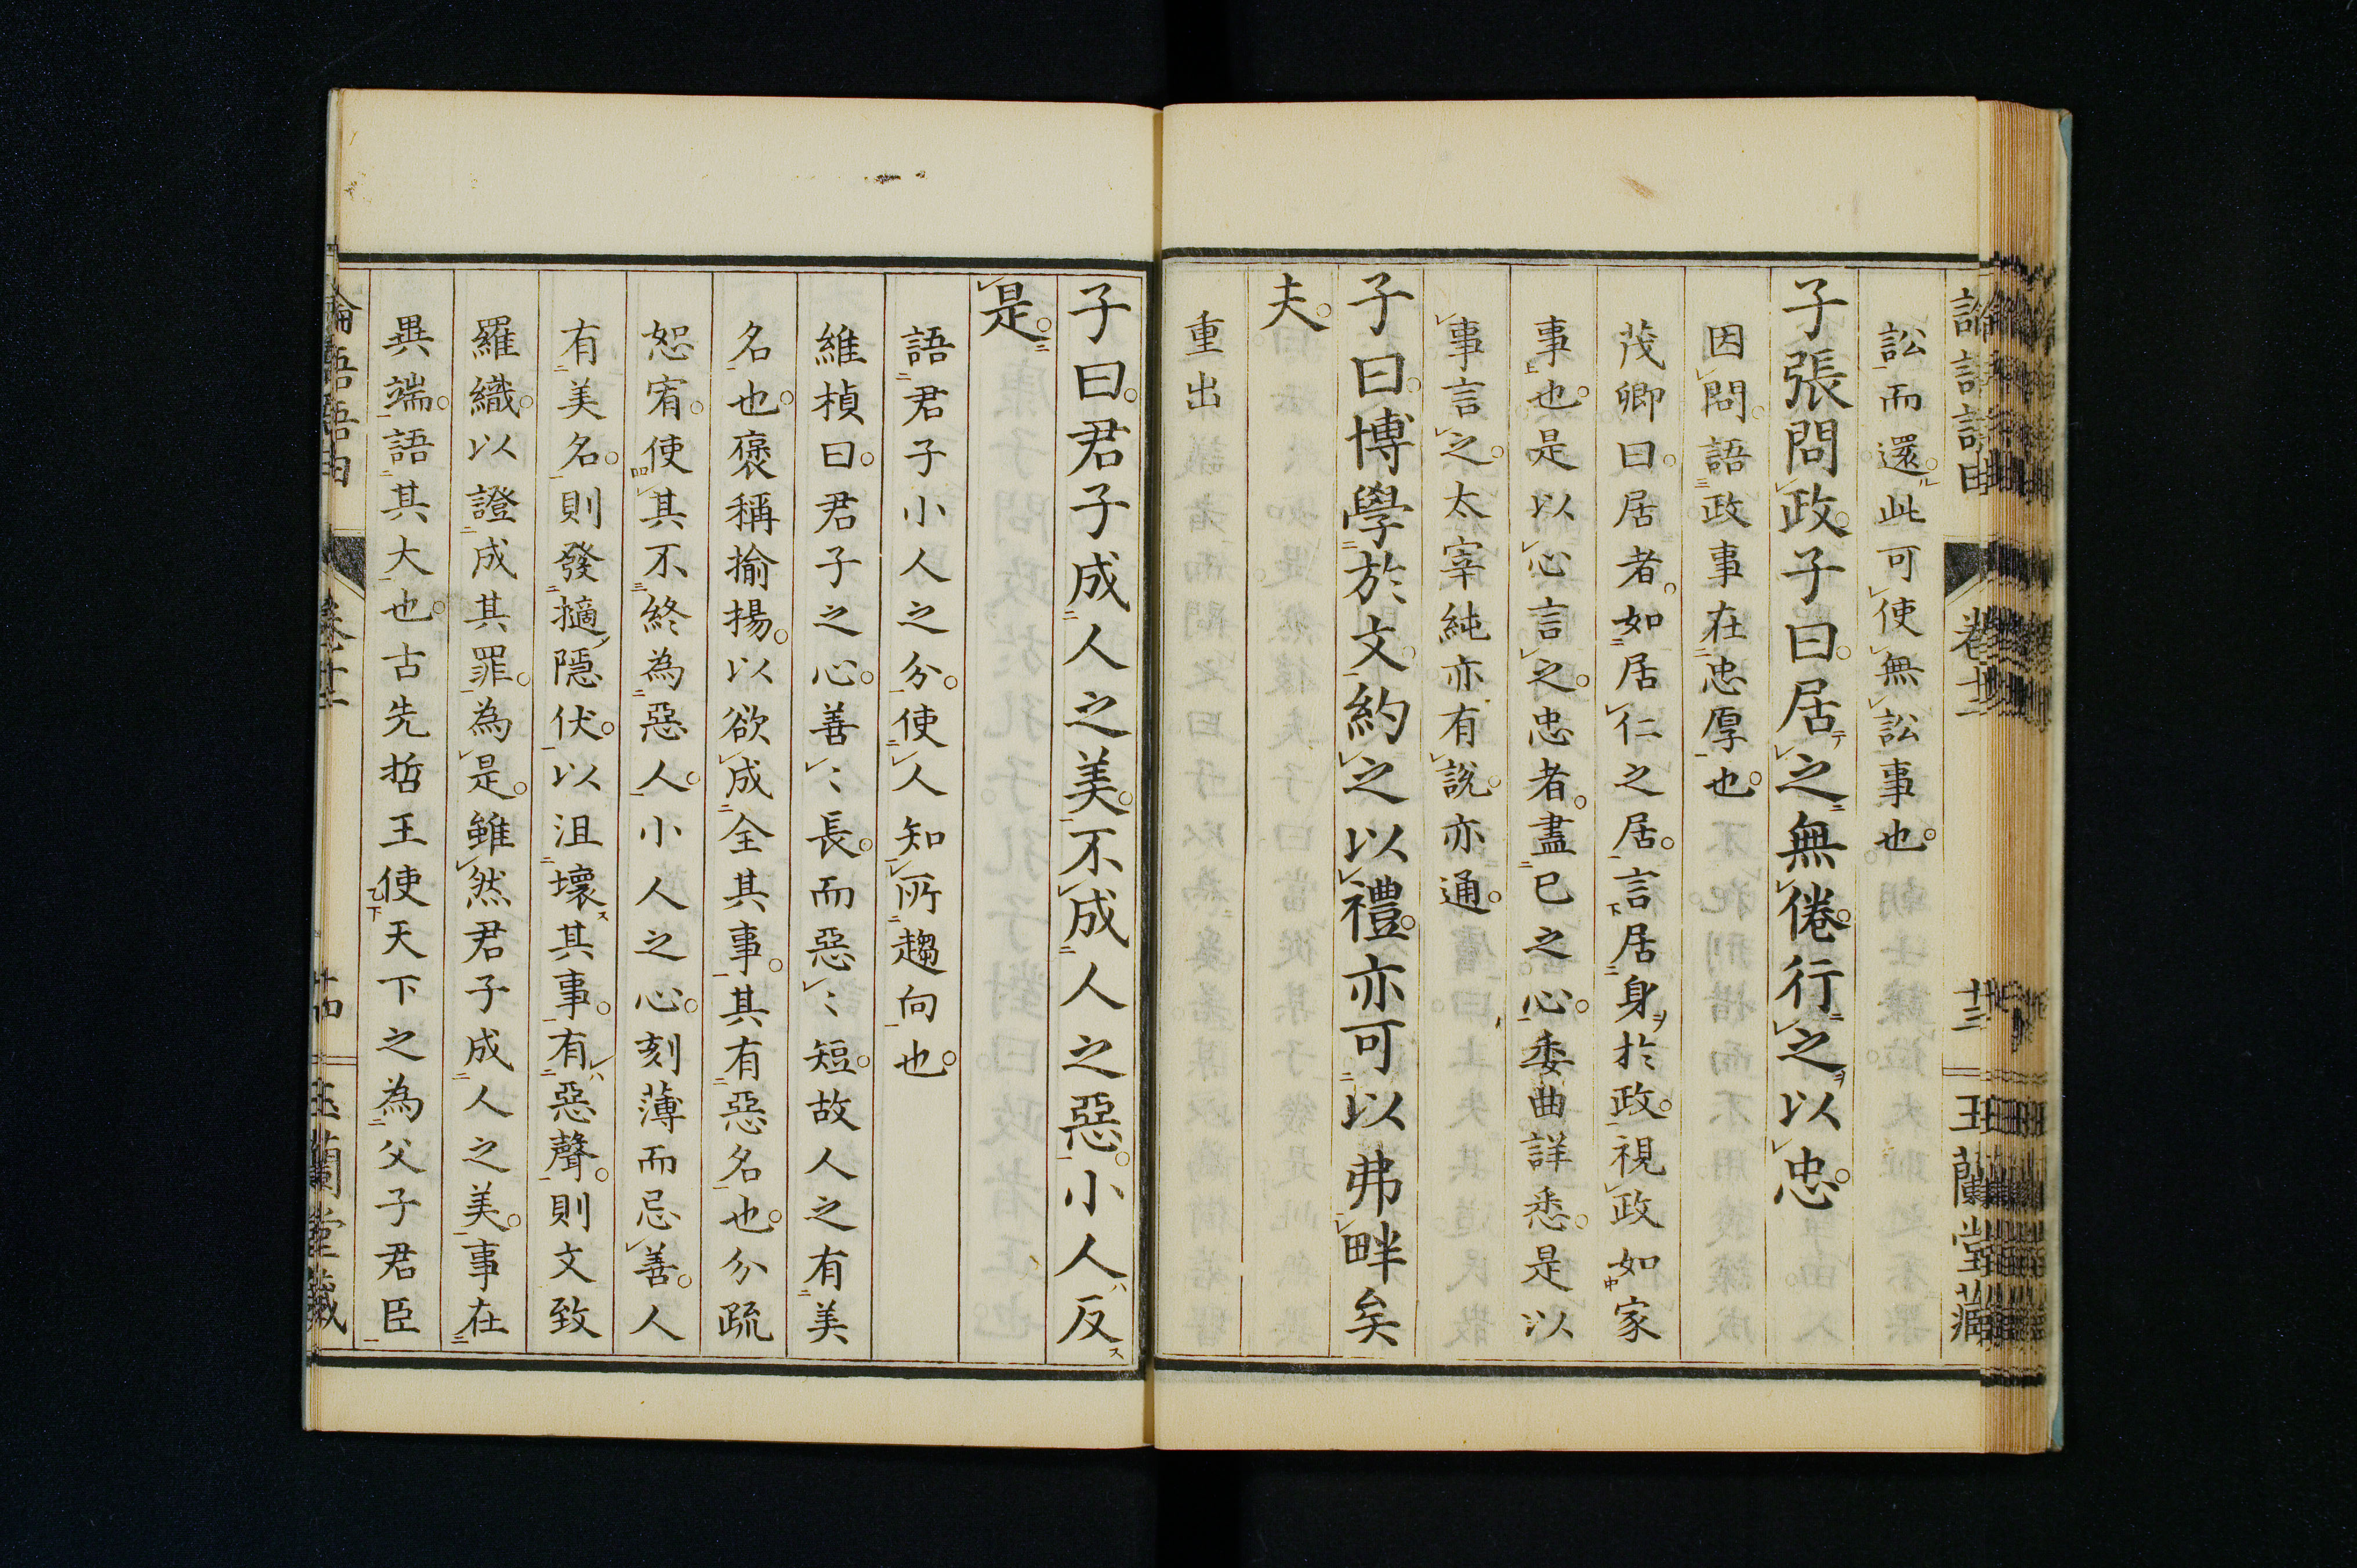 論語語由 卷十二 廿三 玉蘭堂藏
訟而還。此可使無訟事也。
子張問政。子曰。居之無倦。行之以忠。
因問。語政事在忠厚也。
茂卿曰。居者。如居仁之居。言居身於政。視政如家
事也。是以心言之。忠者。盡己之心。委曲詳悉。是以
事言之。太宰純亦有說。亦通。
子曰。博學於文。約之以禮。亦可以弗畔矣
夫。
重出
子曰。君子成人之美。不成人之惡。小人反
是。
語君子小人之分。使人知所趨向也。
維楨曰。君子之心。善〻長。而惡〻短。故人之有美
名也。褒稱揄揚。以欲成全其事。其有惡名也。分疏
恕宥。使其不終為惡人。小人之心。刻薄而忌善。人
有美名。則發擿隱伏。以沮壞其事。有惡聲。則文致
羅織。以證成其罪。為是。雖然君子成人之美。事在
異端。語其大也。古先哲王使天下之為父子君臣
論語語由 卷十二 廿四 玉蘭堂藏